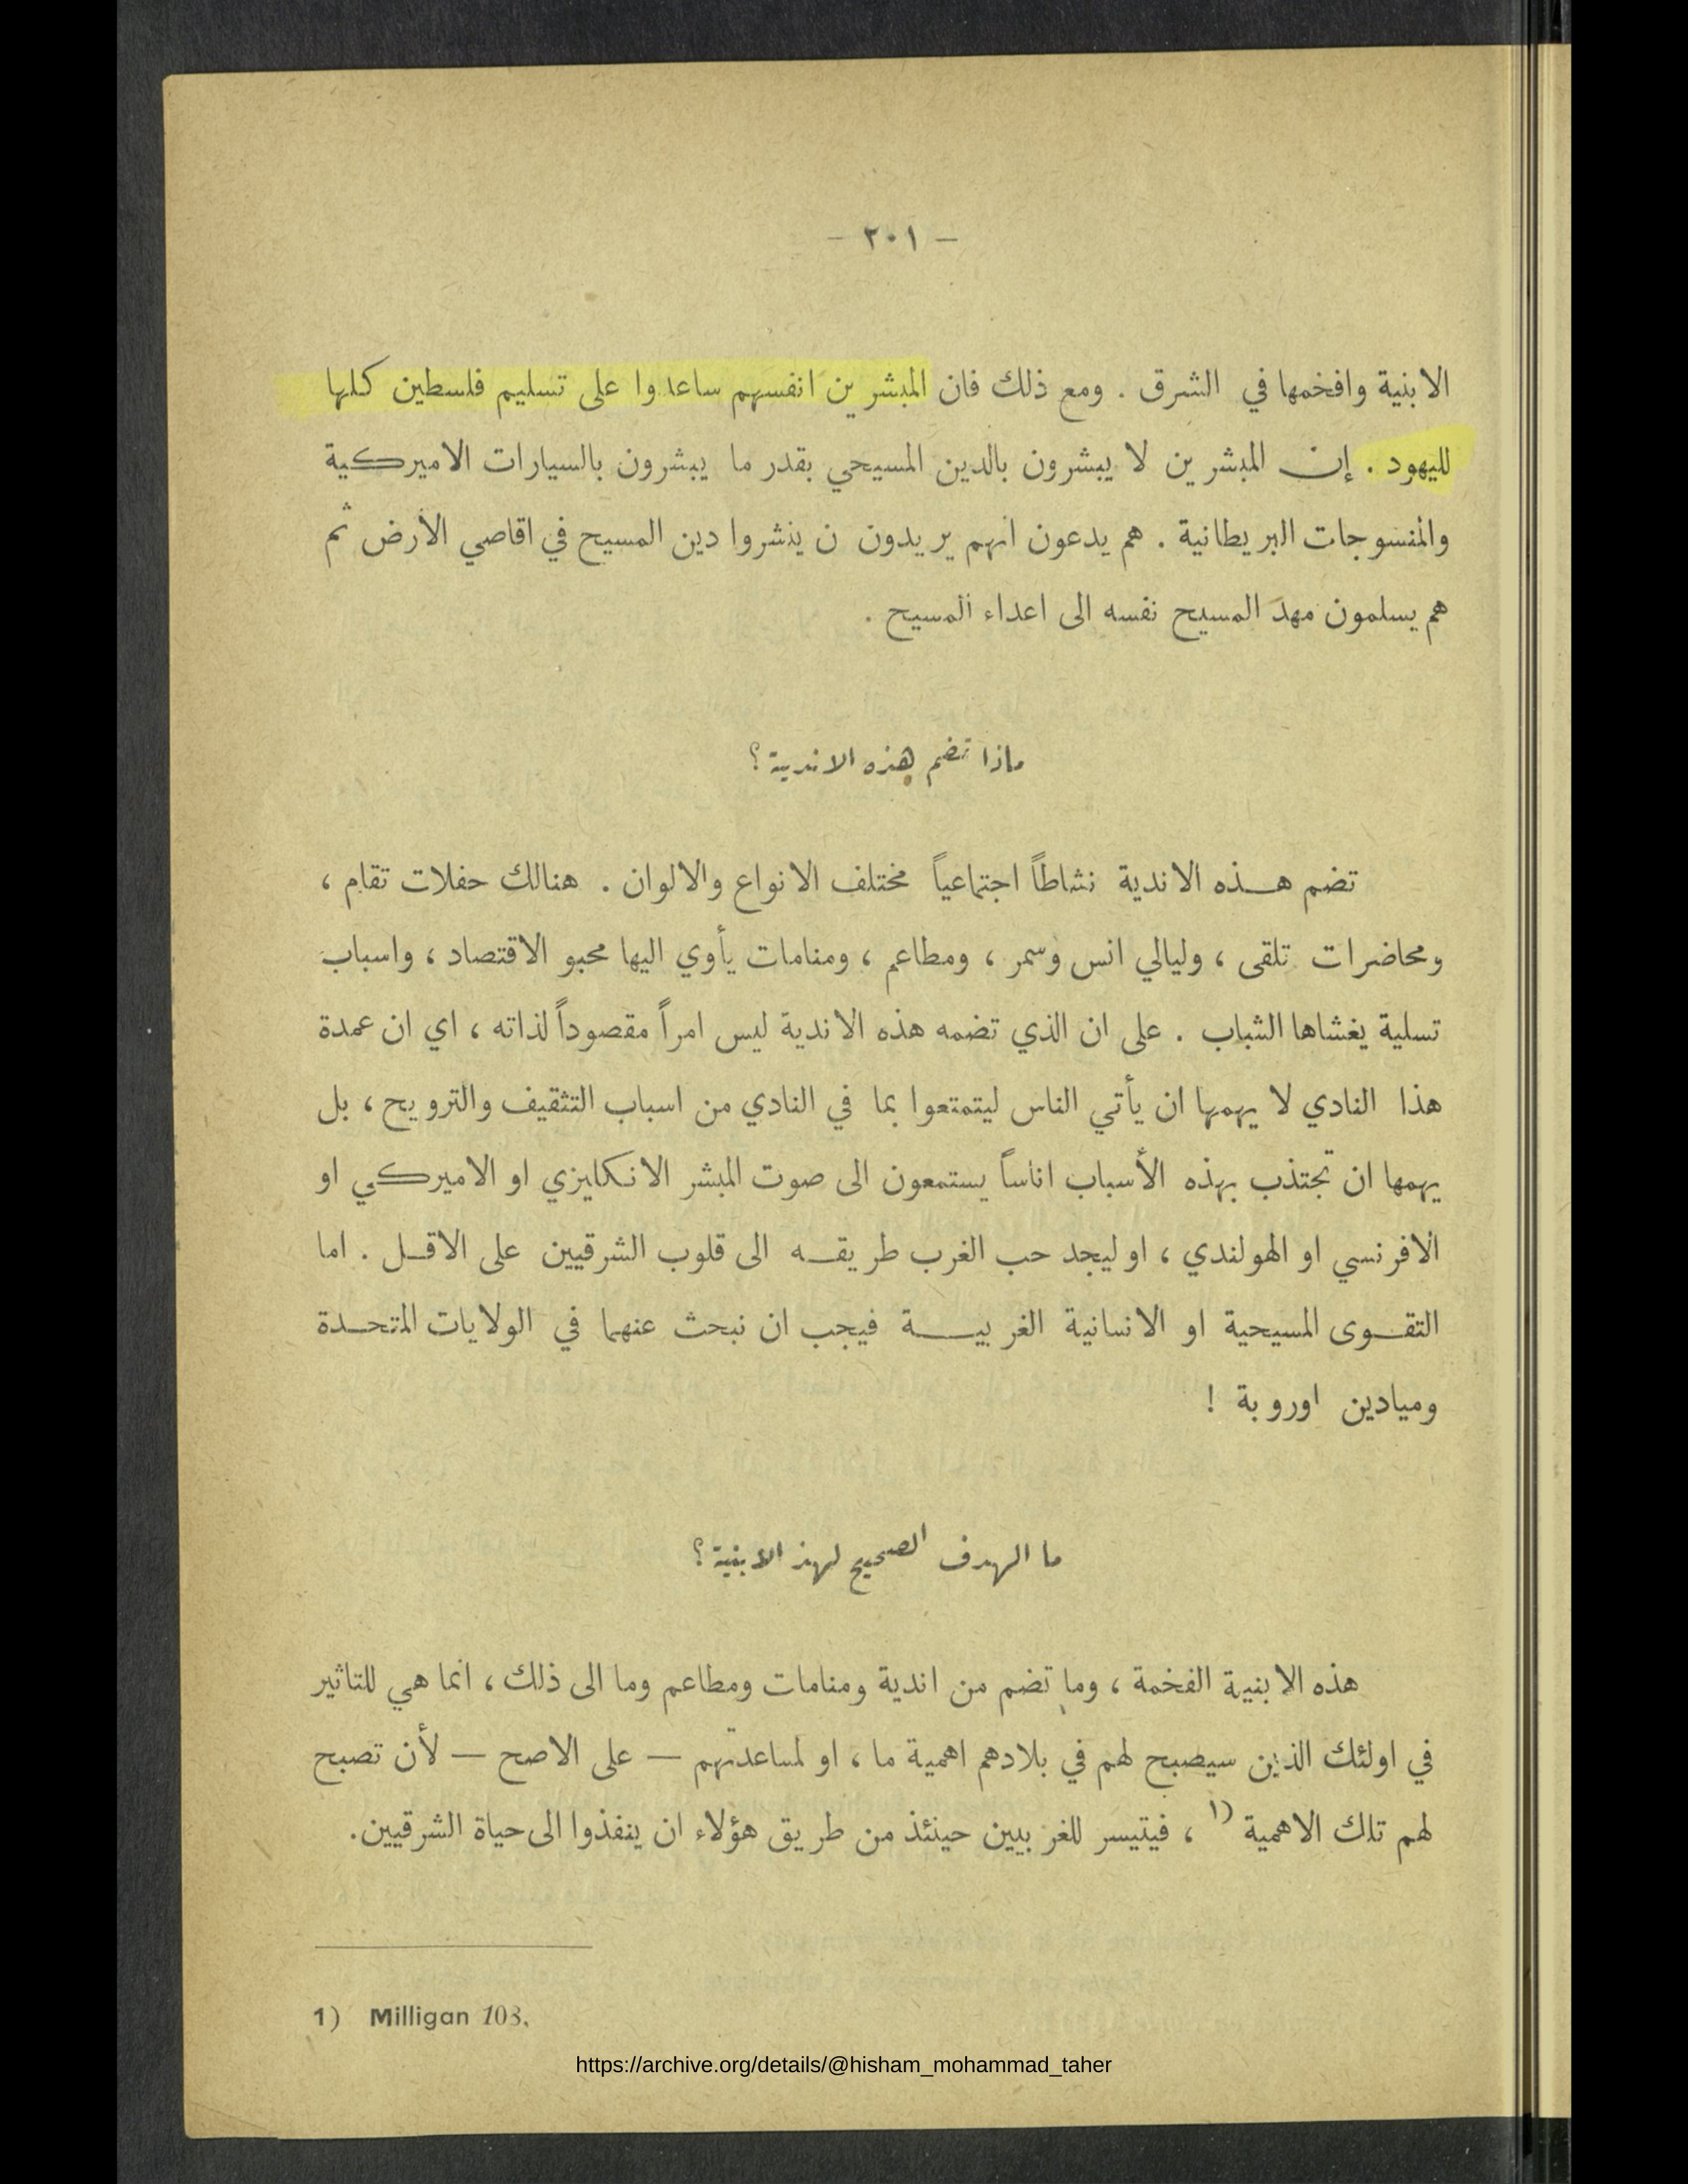 — ٢٠١ —
الابنية وافخمها في الشرق . ومع ذلك فان المبشرين انفسهم ساعدوا على تسليم فلسطين كلها
لليهود . إن المبشرين لا يبشرون بالدين المسيحي بقدر ما يبشرون بالسيارات الاميركية
والمنسوجات البريطانية . هم يدعون انهم يريدون ن ينشروا دين المسيح في اقاصي الأرض ثم
هم يسلمون مهد المسيح نفسه الى اعداء المسيح .
ماذا تضم هذه الاندية ؟
تضم هذه الاندية نشاطاً اجتماعياً مختلف الانواع والالوان . هنالك حفلات تقام ،
ومحاضرات تلقى ، وليالي انس وسمر ، ومطاعم ، ومنامات يأوي اليها محبو الاقتصاد ، واسباب
تسلية يغشاها الشباب . على ان الذي تضمه هذه الاندية ليس امراً مقصوداً لذاته ، اي ان عمدة
هذا النادي لا يهمها ان يأتي الناس ليتمتعوا بما في النادي من اسباب التثقيف والترويح ، بل
يهمها ان تجتذب بهذه الأسباب اناساً يستمعون الى صوت المبشر الانكليزي او الاميركي او
الافرنسي او الهولندي ، او ليجد حب الغرب طريقه الى قلوب الشرقيين على الاقل . اما
التقوى المسيحية او الانسانية الغربية فيجب ان نبحث عنهما في الولايات المتحدة
وميادين اوروبة !
ما الهدف الصحيح لهذ الابنية ؟
هذه الابنية الفخمة ، وما تضم من اندية ومنامات ومطاعم وما الى ذلك ، انما هي للتاثير
في اولئك الذين سيصبح لهم في بلادهم اهمية ما ، او لمساعدتهم — على الاصح — لأن تصبح
لهم تلك الاهمية ١) ، فيتيسر للغربيين حينئذ من طريق هؤلاء ان ينفذوا الى حياة الشرقيين.
1) Milligan 103.
https://archive.org/details/@hisham_mohammad_taher